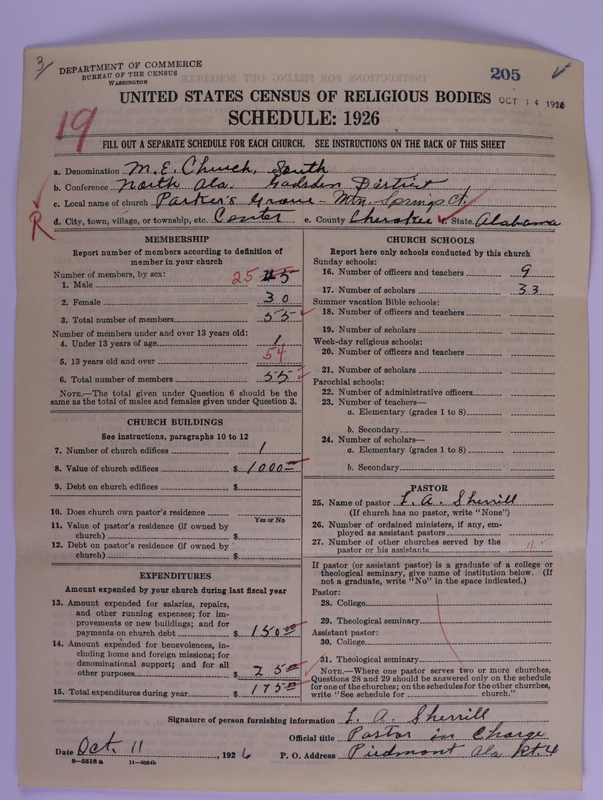 3/
DEPARTMENT OF COMMERCE
BUREAU OF THE CENSUS
WASHINGTON
205
UNITED STATES CENSUS OF RELIGIOUS BODIES
OCT 14 1926
SCHEDULE: 1926
19
FILL OUT A SEPARATE SCHEDULE FOR EACH CHURCH. SEE INSTRUCTIONS ON THE BACK OF THIS SHEET
a. Denomination M. E. Church, South
b. Conference North Ala. Gadsden District
c. Local name of church Parker's Grove - Mtn. Springs Ct.
R
d. City, town, village, or township, etc. Center e. County Cherokee f. State Alabama
MEMBERSHIP
Report number of members according to definition of
member in your church
Number of members, by sex:
1. Male 25
2. Female 30
3. Total number of members 55
Number of members under and over 13 years old:
4. Under 13 years of age 1
5. 13 years old and over 54
6. Total number of members 55
NOTE.—The total given under Question 6 should be
same as the total of males and females given under Question 3.
CHURCH BUILDINGS
See instructions, paragraphs 10 to 12
7. Number of church edifices 1
8. Value of church edifices $ 1000
9. Debt on church edifices $
10. Does church own pastor's residence
Yes or No
11. Value of pastor's residence (if owned by
church) $
12. Debt on pastor's residence (if owned by
church) $
EXPENDITURES
Amount expended by your church during last fiscal year
13. Amount expended for salaries, repairs,
and other running expenses; for im-
provements or new buildings; and for
payments on church debt $ 150.00
14. Amount expended for benevolences, in-
cluding home and foreign missions; for
denominational support; and for all
other purposes $ 25.00
15. Total expenditures during year $ 175.00
CHURCH SCHOOLS
Report here only schools conducted by this church
Sunday schools:
16. Number of officers and teachers 9
17. Number of scholars 33
Summer vacation Bible schools:
18. Number of officers and teachers
19. Number of scholars
Week-day religious schools:
20. Number of officers and teachers
21. Number of scholars
Parochial schools:
22. Number of administrative officers
23. Number of teachers—
a. Elementary (grades 1 to 8)
b. Secondary
24. Number of scholars—
a. Elementary (grades 1 to 8)
b. Secondary
PASTOR
25. Name of pastor L. A. Sherrill
(If church has no pastor, write "None")
26. Number of ordained ministers, if any, em-
ployed as assistant pastors
27. Number of other churches served by the
pastor or his assistants
If pastor (or assistant pastor) is a graduate of a college or
theological seminary, give name of institution below. (If
not a graduate, write "No" in the space indicated.)
Pastor:
28. College
29. Theological seminary
Assistant pastor:
30. College
31. Theological seminary
NOTE.—Where one pastor serves two or more churches,
Questions 28 and 29 should be answered only on the schedule
for one of the churches; on the schedules for the other churches,
write "See schedule for church."
Signature of person furnishing information L. A. Sherrill
Official title Pastor in Charge
Date Oct. 11, 1926 P. O. Address Piedmont Ala Rt. 4
8—5518a 11—9034b